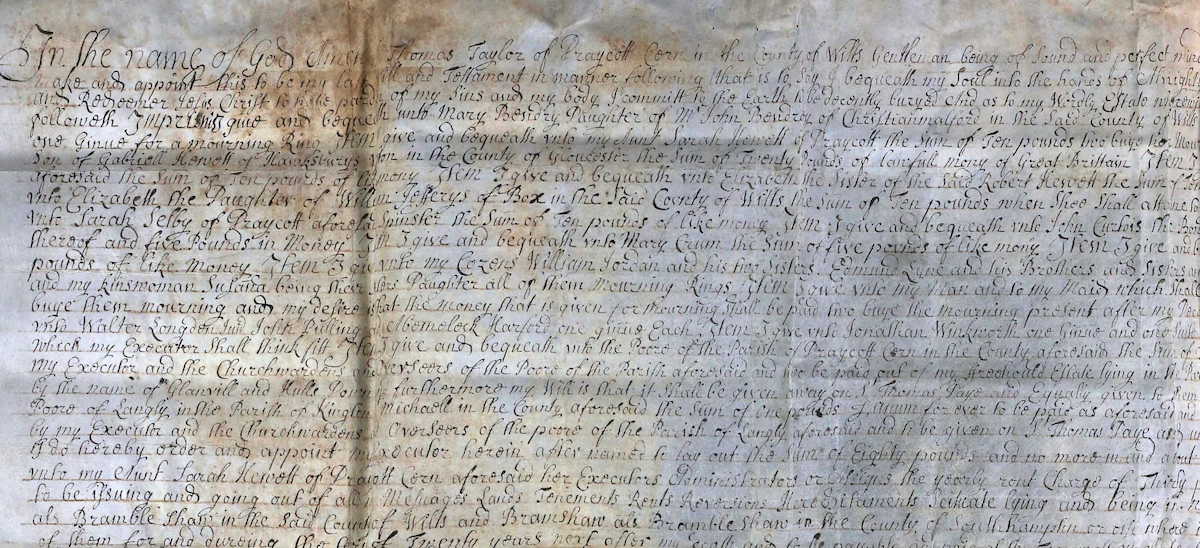 In the name of God Amen I Thomas Taylor of Draycott Cern in the County of Wilts Gentleman being of Sound and perfect mind
make and appoint this to be my last Will and Testament in manner following that is to Say I bequeath my Soul into the hands of Almighty
and Redeemer Jesus Christ to have pardon of my Sins and my body I committ to the Earth to be decently buryed And as to my Wordly Estate
followeth Imprimis I give and bequeath unto Mary Daughter of Mr John of Christianmalford in the Said County of Wilts
one Ginue for a mourning Ring Item I give and bequeath unto my Aunt Sarah Hewett of Draycott the Sum of Ten pounds too buye her Mourning
Son of Gabriell Hewett of in the County of Gloucester the Sum of Twenty Pounds of lawfull mony of Great Brittain Item
aforesaid the Sum of Ten pounds of like mony Item I give and bequeath unto Elizabeth the Sister of the Said Robert Hewett the Sum of
unto Elizabeth the Daughter of William Jefferys of Box in the Said County of Wilts the Sum of Ten pounds when Shee Shall attaine
unto Sarah Selby of Draycott aforesaid Spinster the Sum of Ten pounds of like mony Item I give and bequeath unto John the
thereof and five Pounds in Money Item I give and bequeath unto Mary Crum the Sum of five pounds of like mony Item I give and
pounds of like Money Item I give unto my Cozens William Jordan and his two Sisters Edmund Lyne and his Brothers and Sisters
and my kinswoman Susana being Daughter all of them Mourning Rings Item I give unto my Man and to my Maid which Shall
buye them mourning and my desire is that the money that is given for mourning Shall be paid two buye the mourning present after my
unto Walter Longden and Josh Billing Harford one ginue Each Item I give unto Jonathan Winkworth one Ginue and
which my Executor Shall think fitt Item I give and bequeath unto the Poore of the Parish of Draycott Cern in the County aforesaid the Sum of
my Executor and the Churchwardens and Overseers of the Poore of the Parish aforesaid and too be paid out of my freehould Estate lying in
by the name of Glanvill and Hulls furthermore my Will is that it shall be given away on St Thomas Daye and Equally given to
Poore of Langly in the Parish of Kington Michaell in the County aforesaid the Sum of one pounds for ever to be paid as aforesaid
by my Executor and the Churchwardens Overseers of the poore of the Parish of Langly aforesaid and to be given on St Thomas Daye
I do hereby order and appoint my Executor herein after named to lay out the Sum of Eighty pounds and no more in and about
unto my Aunt Sarah Hewett of Draycott Cern aforesaid her Executors Administrators or Assigns the yearly rent Charge of Thirty
to be ishuing and going out of all Mesuages Lands Tenements Rents Reversions Hereditaments Scituate lying and being in
als Bramble Shaw in the Said County of Wilts and Bramshaw als Bramble Shaw in the County of Southampton or else where
of them for and dureing the of Twenty years next after my and to be